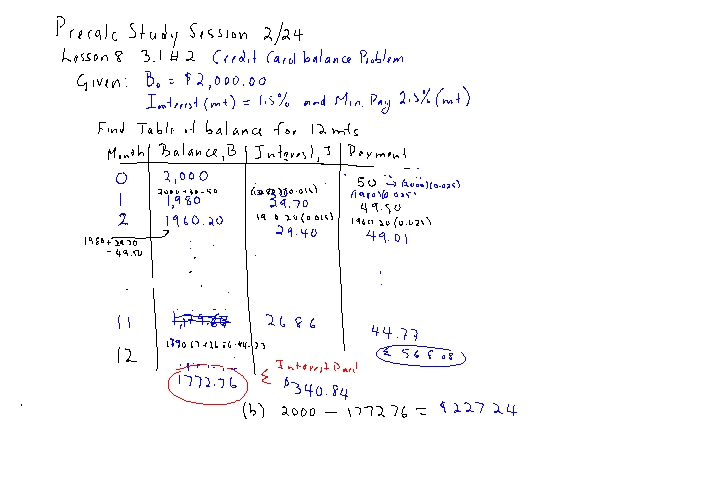 Precalc Study Session 2/24
Lesson 8 3.1 #2 Credit Card balance Problem
Given: B₀ = $2,000.00
Interest (mt) = 1.5% and Min. Pay 2.5% (mt)
Find Table of balance for 12 mts
Month | Balance, B | Interest, I | Payment
0 2,000 50 → (2000)(0.025)
2000+30-50
1 1,980 29.70 49.50
1960.20(0.025)
2 1960.20 29.40 49.01
1980+29.70
-49.50
11 26.86 44.77
12
1772.76 Σ Interest Paid $340.84
(b) 2000 - 1772.76 = $227.24